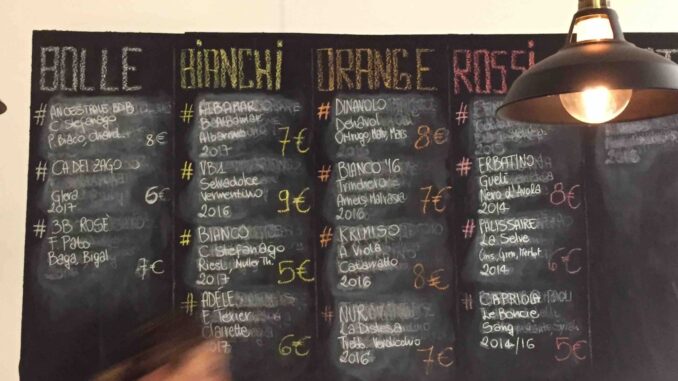 BOLLE
# ANCESTRALE
C. Stefanago
P. Bianco, Chard.
8€
# CA DEI ZAGO
Glera
2017
6€
# 3B ROSÈ
F. Pato
Baga, Bigal
7€
BIANCHI
# ALBAMAR
B. Albamar
Albarino
2017
7€
# VB1
Selvadolce
Vermentino
2016
9€
# BIANCO
C. Stefanago
Riesl, Muller Th.
2017
5€
# ADÈLE
E. Texier
Clairette
2017
6€
ORANGE
# DINAVOLO
Denavol
Ortrugo, Malv, Mars
8€
# BIANCO '16
Trinchero
Arneis, Malvasia
2016
7€
# KRIMISO
A. Viola
Catarratto
2016
8€
# NUR
La Distesa
Treb, Verdicchio
2016
7€
ROSSI
#
# ERBATINO
Gueli
Nero d'Avola
2014
8€
# PALISSAIRE
La Selve
Cins, Gren, Merlot
2014
6€
# CAPRIOLA
Le Boncie
Sang
2014/16
5€